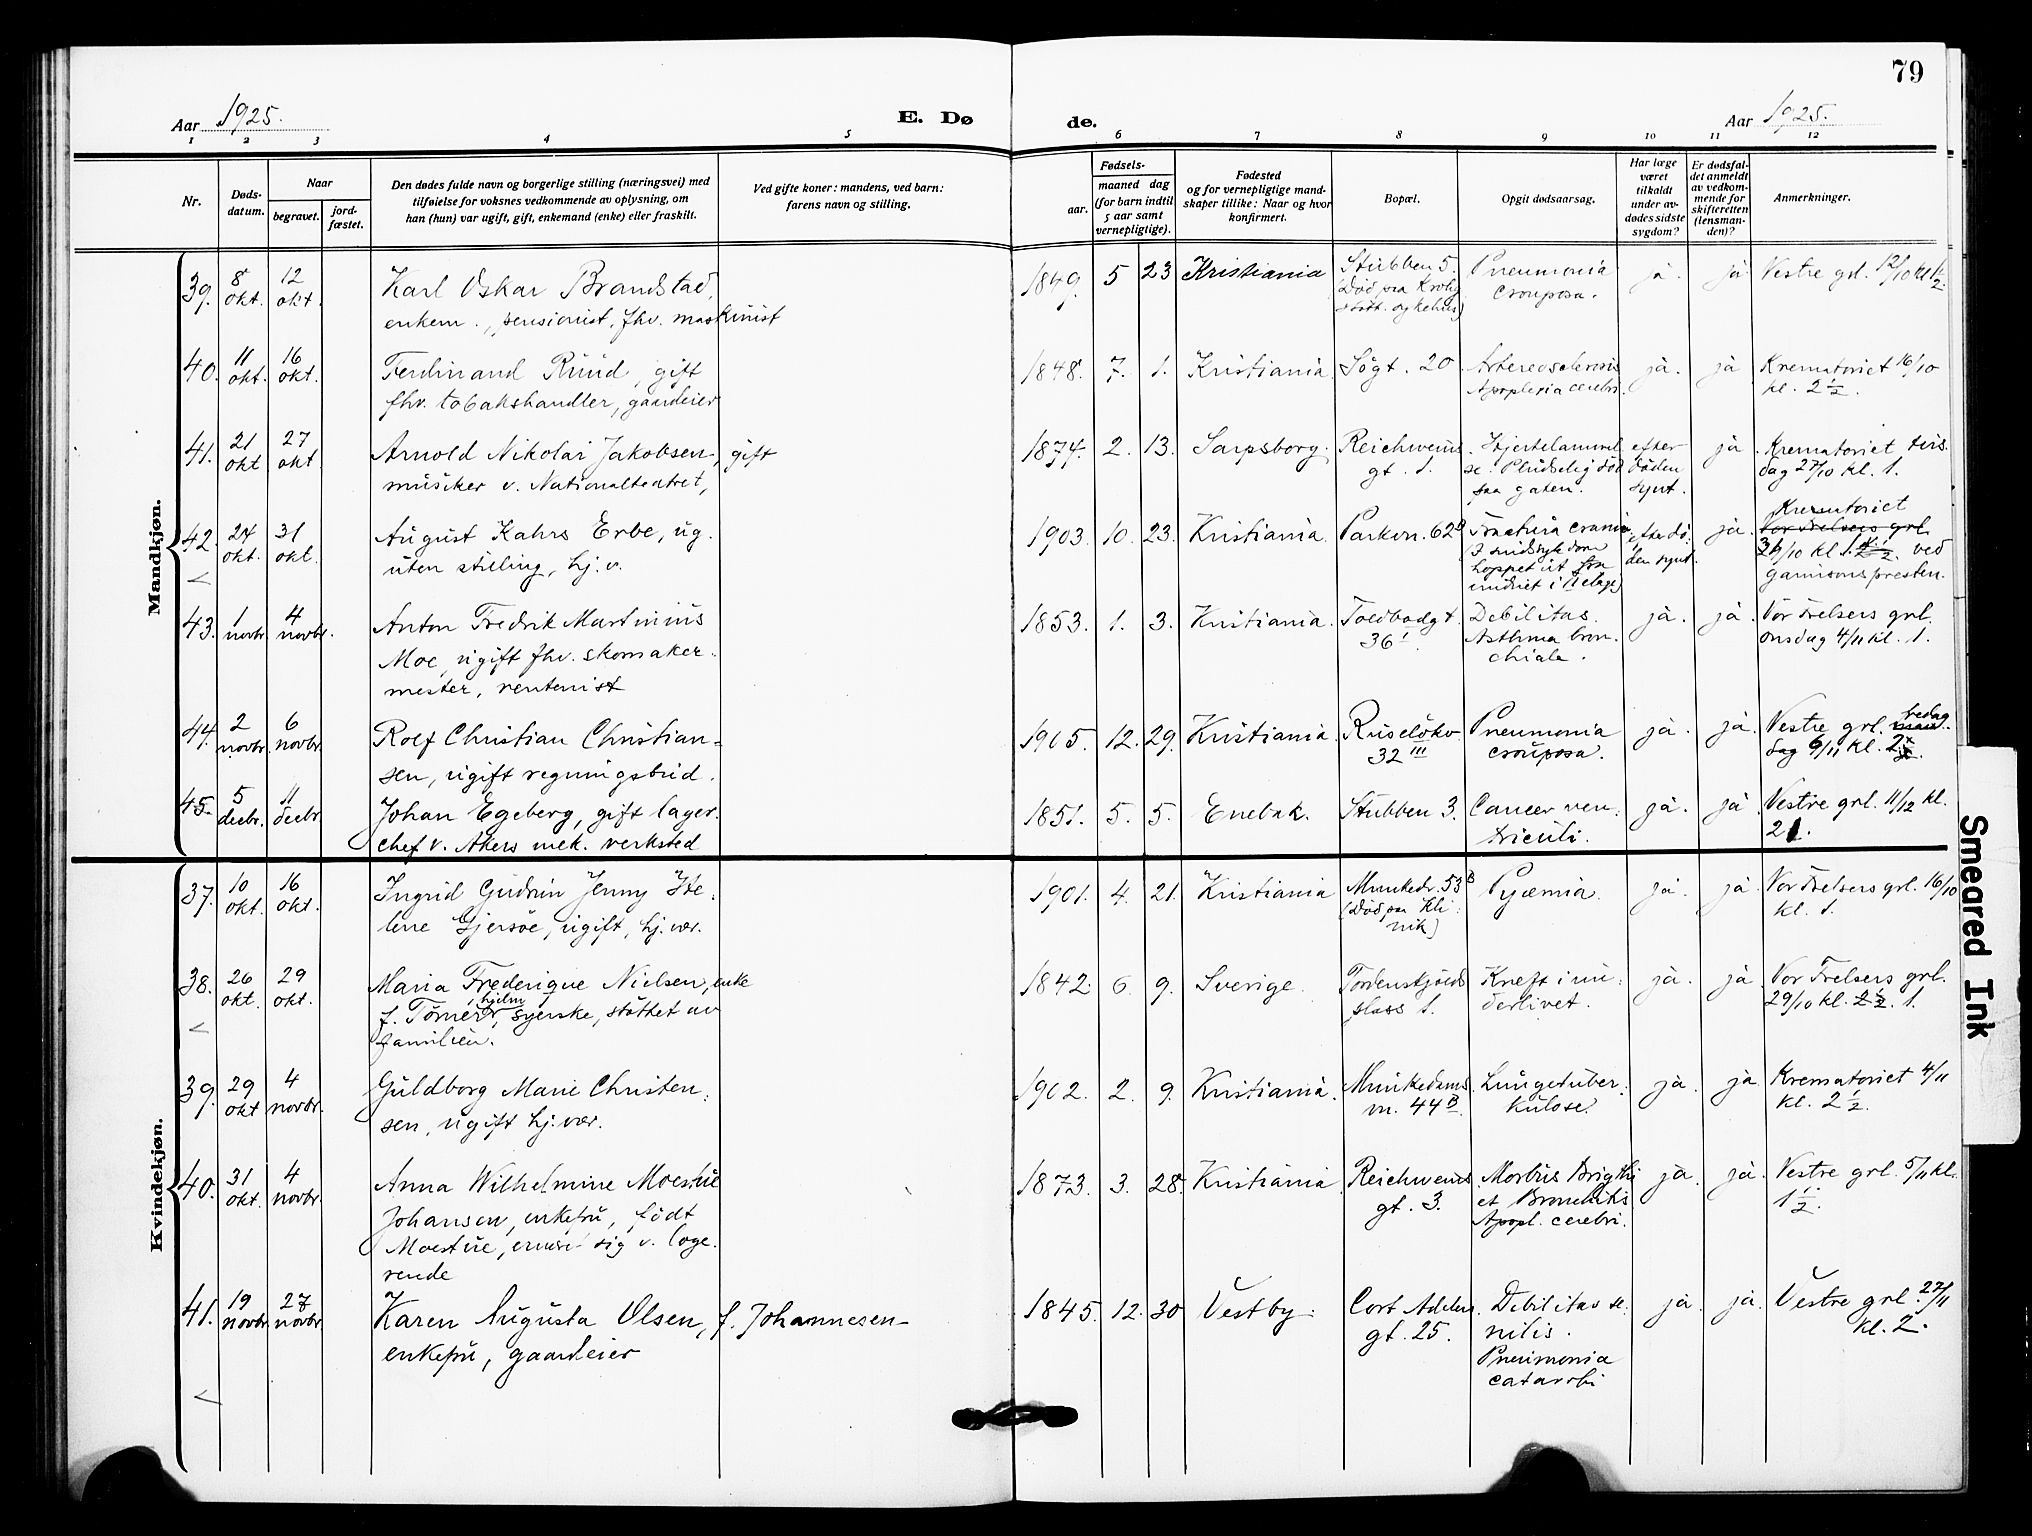 79
Aar 1925.
E. Dø
de.
Aar 1925.
1 2 3 4 5 6 7 8 9 10 11 12
Nr.
Døds-
datum.
Naar
begravet.
jord-
fæstet.
Den dødes fulde navn og borgerlige stilling (næringsvei) med
tilføielse for voksnes vedkommende av oplysning, om
han (hun) var ugift, gift, enkemand (enke) eller fraskilt.
Ved gifte koner: mandens, ved barn:
farens navn og stilling.
Fødsels-
aar.
maaned dag
(for barn indtil
5 aar samt
vernepligtige).
Fødested
og for vernepligtige mand-
skaper tillike: Naar og hvor
konfirmert.
Bopæl.
Opgit dødsaarsag.
Har læge
været
tilkaldt
under av-
dødes sidste
sygdom?
Er dødsfal-
det anmeldt
av vedkom-
mende for
skifteretten
(lensman-
den)?
Anmerkninger.
Mandkjøn.
39. 8 okt. 12 okt.
Karl Oskar Brandstad,
enkem., pensionist, fhv. maskinist
1849. 5 23 Kristiania
Stubben 5.
Pneumonia
crouposa.
ja. ja
Vestre grl. 12/10 kl 1 1/2.
40. 11 okt. 16 okt.
Ferdinand Ruud, gift
fhv. tobakshandler, gaardeier
1848. 7. 1. Kristiania
Søgt. 20
Arterosclerosis
Apoplexia cerebri.
ja. ja
Krematoriet 16/10
kl. 2 1/2.
41. 21 okt 27 okt.
Arnold Nikolai Jakobsen, gift
musiker v. Nationalteatret,
1874. 2. 13. Sarpsborg.
Reichweins
gt. 1.
Hjertelammel
se. Pludselig død
paa gaten.
efter
døden
synt.
ja
Krematoriet tirs.
dag 27/10 kl. 1.
42. 24 okt. 31 okt.
August Kahrs Erbe, ug.
uten stilling, hj. v.
1903. 10. 23. Kristiania.
Parkvn. 62
Fractura cranii
(I sindssykdom
hoppet ut fra
vinduet i II etage)
efter dø.
den synt.
ja.
Krematoriet
Vor Frelsers grl.
31/10 kl 1. ved
garnisonspresten.
43. 1 novbr. 4 novbr.
Anton Fredrik Martinius
Moe, ugift fhv. skomaker.
mester, rentenist
1853. 1. 3. Kristiania.
Toldbodgt.
36 I.
Debilitas.
Asthma bron.
chiale.
ja. ja.
Vor Frelsers grl.
onsdag 4/11 kl. 1.
44. 2 novbr. 6 novbr.
Rolf Christian Christian-
sen, ugift regningsbud.
1905. 12. 29. Kristiania.
Ruseløkv.
32 III
Pneumonia
crouposa.
ja. ja.
Vestre grl. fredag
dag 6/11 kl. 2
45. 5 decbr. 11 decbr
Johan Egeberg, gift lager.
chef v. Akers mek. verksted
1851. 5. 5. Enebak.
Stubben 3.
Cancer ven.
triculi.
ja. ja
Vestre grl. 11/12 kl.
2
Kvindekjøn.
37. 10 okt. 16 okt.
Ingrid Gudrun Jenny He.
lene Gjersøe, ugift, hj. vær.
1901. 4. 21. Kristiania
Munkedv. 53 B
(Død paa kli.
nik)
Pyæmia.
ja. ja.
Vor Frelsers grl. 16/10
kl. 1.
38. 26 okt. 29 okt.
Maria Frederique Nielsen, enke
f. Törnerhjelm, syerske, støttet av
familien.
1842. 6. 9. Sverige.
Tordenskjolds
plass 1.
Kreft i un.
derlivet.
ja. ja
Vor Frelsers grl.
29/10 kl. 2 1/2. 1.
39. 29 okt 4 novbr.
Guldborg Marie Christen.
sen, ugift hj. vær.
1902. 2. 9. Kristiania.
Munkedams
vn. 44 B.
Lungetuber.
kulose.
ja. ja
Krematoriet 4/11
kl. 2 1/2.
40. 31 okt. 4 novbr.
Anna Wilhelmine Moestue
Johansen, enkefru, født
Moestue, ernært sig v. loge.
rende
1873. 3. 28. Kristiania.
Reichweins
gt. 3.
Morbus Brigthi
et Bronchitis
Apopl. cerebri.
ja. ja.
Vestre grl. 5/11 kl.
1 1/2.
41. 19 novbr. 27 novbr
Karen Augusta Olsen, f. Johannesen
enkefru, gaardeier
1845. 12. 30 Vestby.
Cort Adelers
gt. 25.
Debilitas se.
nilis.
Pneumonia
catarrhi
ja. ja.
Vestre grl. 27/11
kl. 2.
Smeared Ink